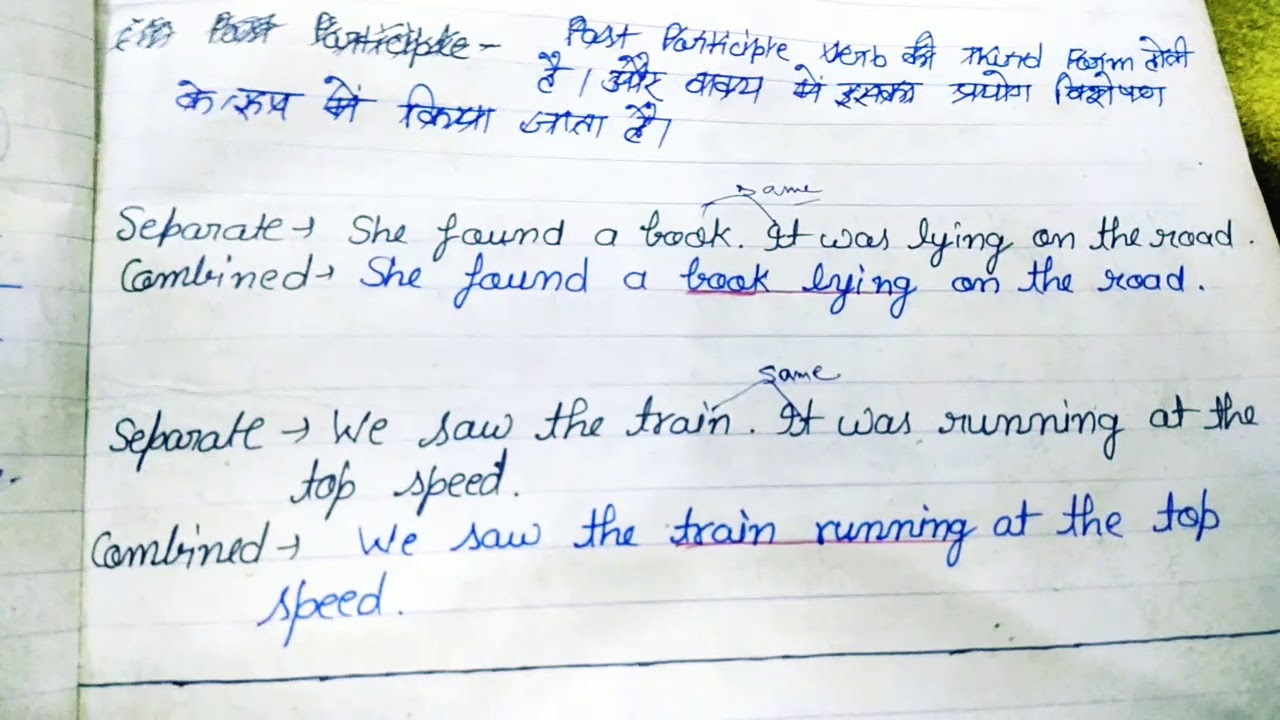 (ii) Past Participle - Past Participle verb की Third Form होती
है। और वाक्य में इसका प्रयोग विशेषण
के रूप में किया जाता है।
same
Separate → She found a book. It was lying on the road.
Combined → She found a book lying on the road.
same
Separate → We saw the train. It was running at the
top speed.
Combined → We saw the train running at the top
speed.